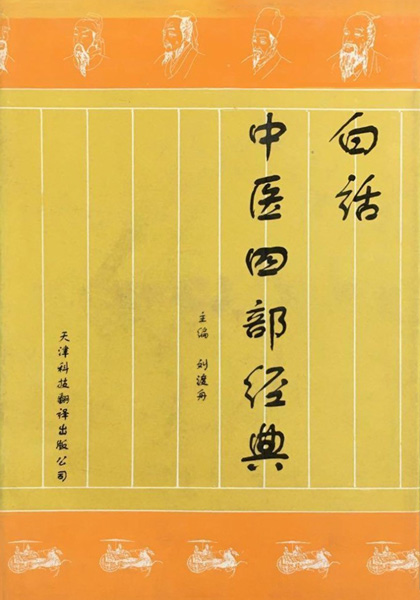 白话
中医四部经典
主编 刘渡舟
天津科技翻译出版公司